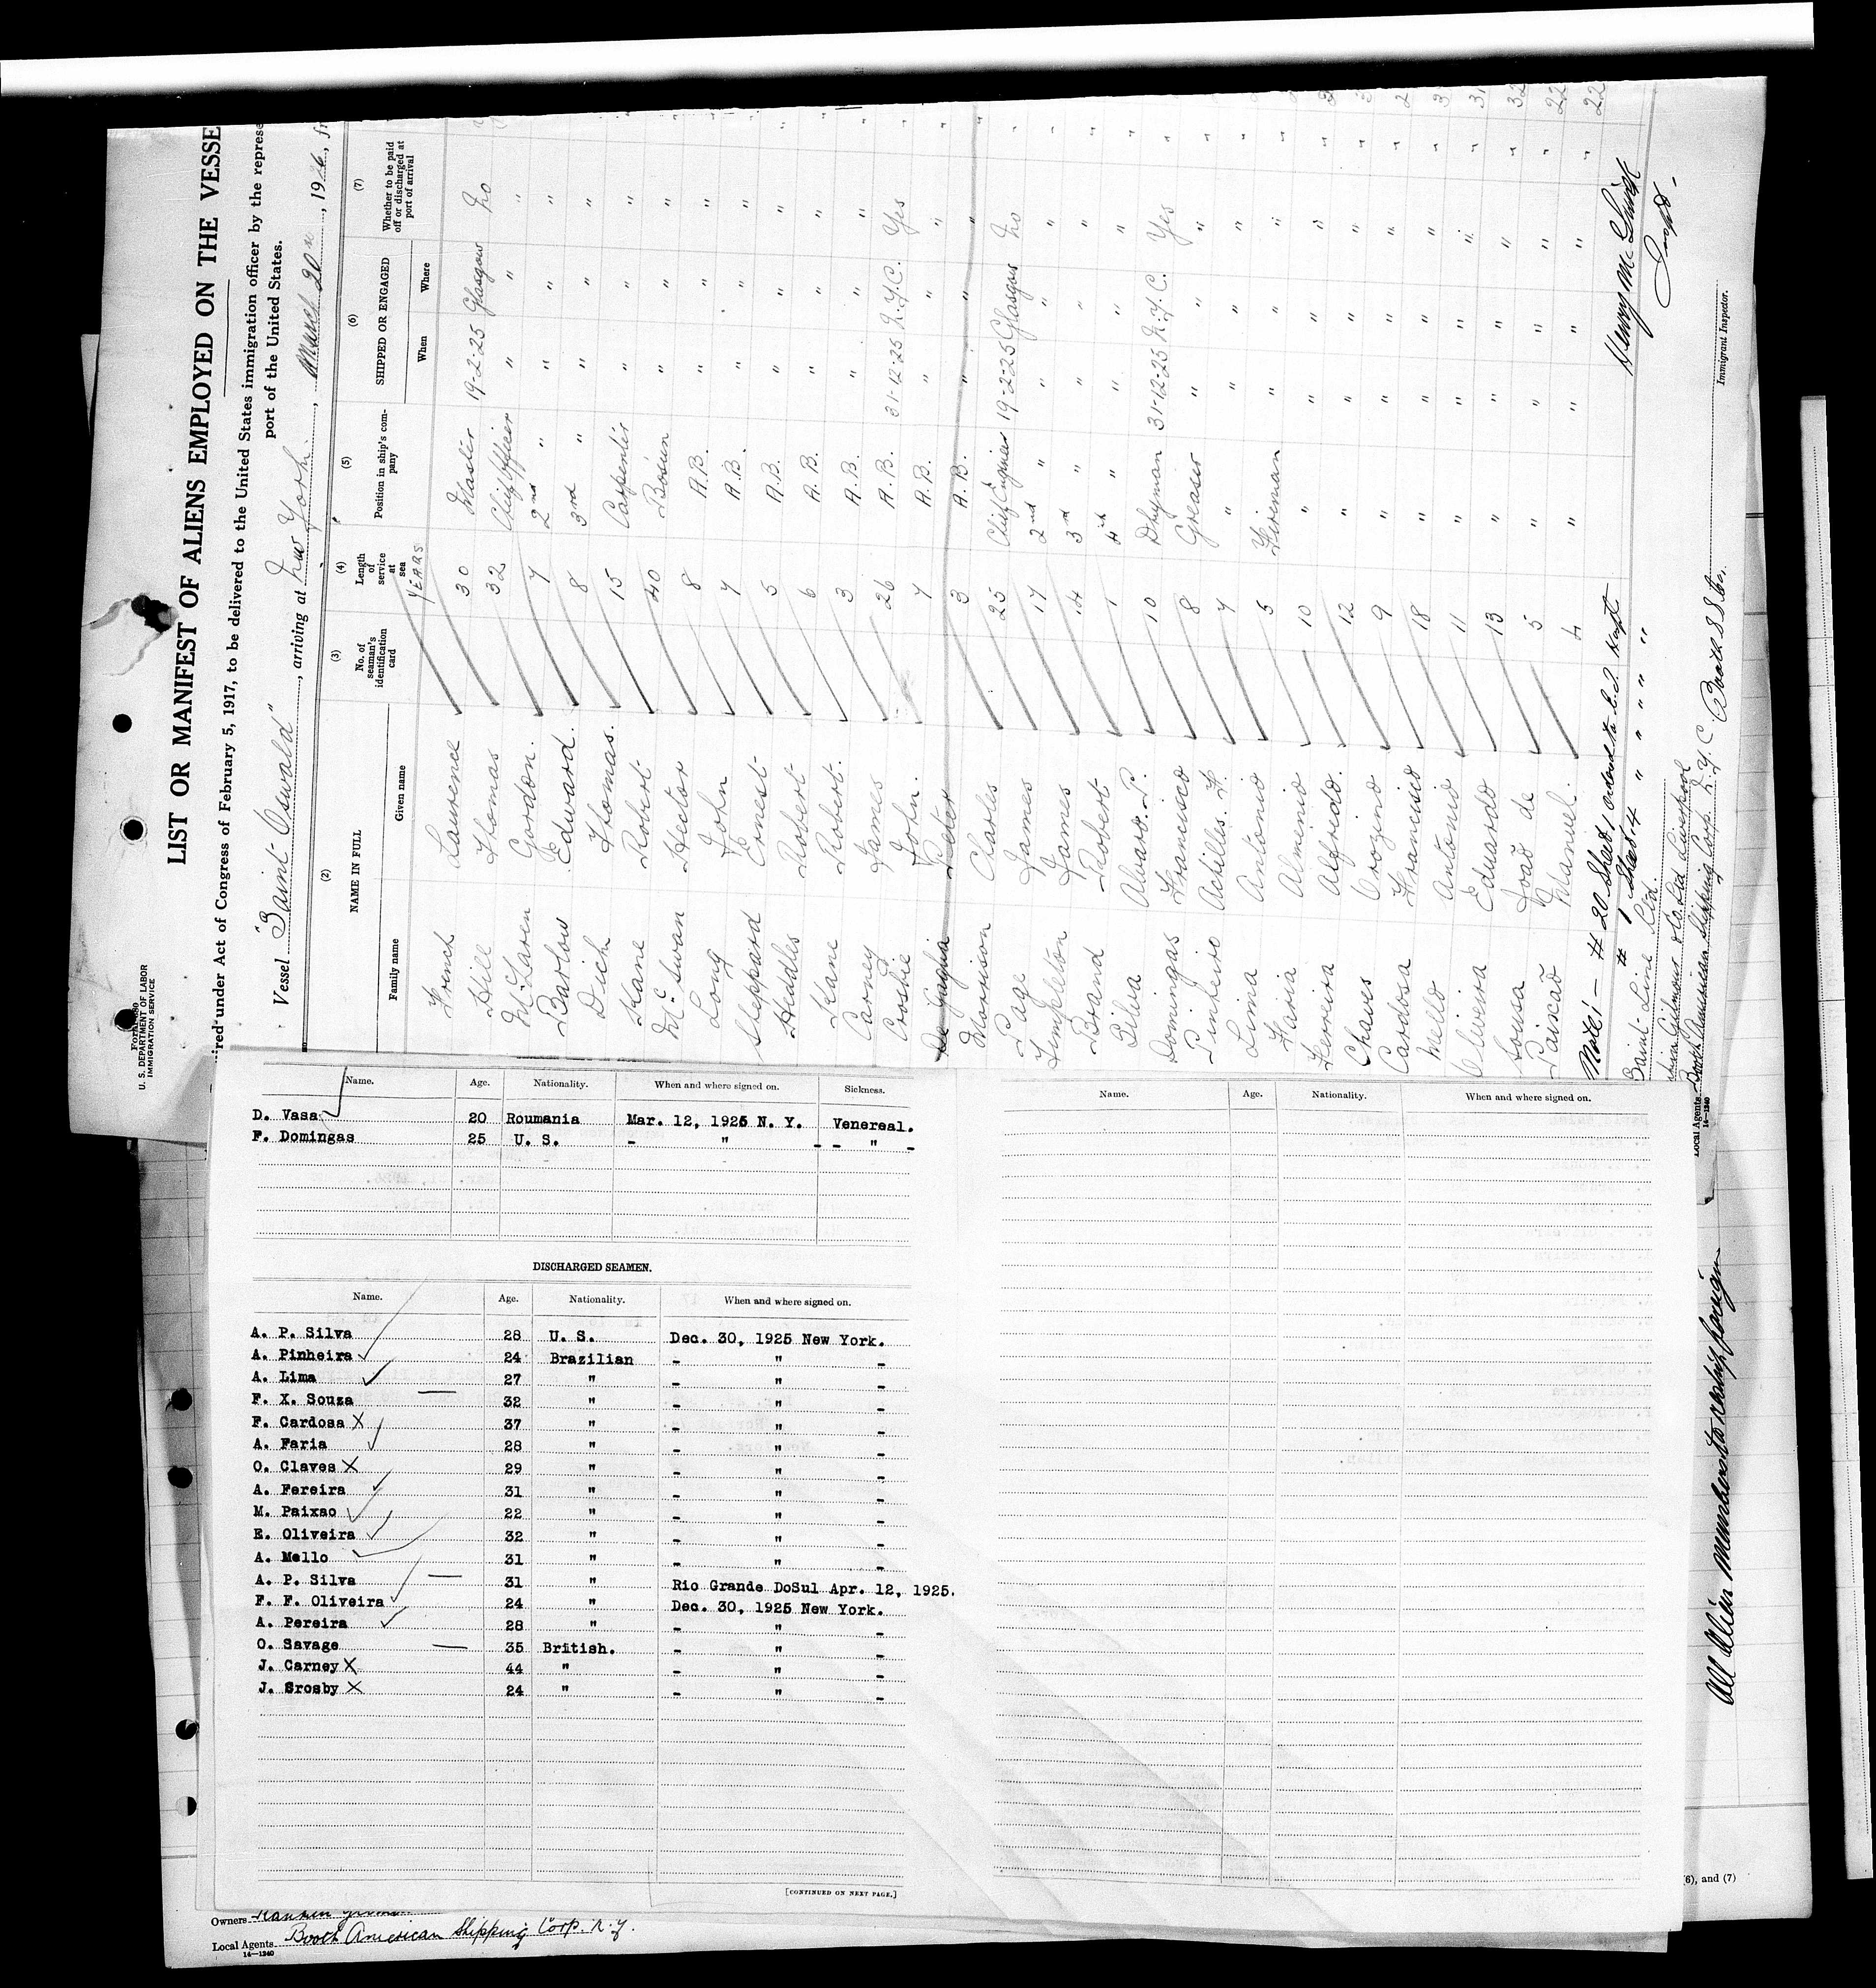 Form 680
U. S. DEPARTMENT OF LABOR
IMMIGRATION SERVICE
LIST OR MANIFEST OF ALIENS EMPLOYED ON THE VESSE
red under Act of Congress of February 5, 1917, to be delivered to the United States immigration officer by the represe
port of the United States.
Vessel "Saint Oswald", arriving at New York, March 20, 1926, fr
(2) (3) (4) (5) (6) (7)
NAME IN FULL No. of seaman's identification card Length of service at sea Position in ship's company SHIPPED OR ENGAGED Whether to be paid off or discharged at port of arrival
Family name Given name When Where
YEARS
French Laurence 30 Master 19-2-25 Glasgow No
Hill Thomas 32 Chief Officer " " "
McLaren Gordon. 7 2nd " " " "
Barlow Edward. 8 3rd " " " "
Dich Thomas. 15 Carpenter " " "
Kane Robert 40 Bosun " " "
McSwan Hector 8 A.B. " "
Long John 7 A.B. " " "
Sheppard Ernest 5 A.B. " " "
Heddles Robert 6 A.B. " " "
Kane Robert. 3 A.B. " " "
Carney James 26 A.B. 31-12-25 N.Y.C. Yes
Crosbie John. 7 A.B. " " "
De Gaglia Peter 3 A.B. " " "
Morrison Charles 25 Chief Engineer 19-2-25 Glasgow No
Page James 17 2nd " " " "
Templeton James 14 3rd " " " "
Brand Robert 1 4th " " " "
Silva Alvaro. P. 10 Dkyman 31-12-25 N.Y.C. Yes
Domingas Francisco 8 Greaser " " "
Pinheiro Achilles. F. 7 " " " "
Lima Antonio 5 Fireman " " "
Faria Alminio 10 " " " "
Ferreira Alfredo. 12 " " " "
Chaves Orozino 9 " " " "
Cardosa Francisco 18 " " " "
Mello Antonio 11 " " " "
Oliveira Eduardo 13 " " " "
Sousa João de 5 " " " "
Paisao Manuel. 4 " " " "
Note! - # 20 Sheet 1
# 1 Sheet 4 " " " " "
Henry McGuirk
Inspr.
Immigrant Inspector.
Saint Line Ltd.
Gilmour & Co. Ltd Liverpool
Local Agents Booth American Shipping Corp. N.Y.C. Booth SS Co.
14—1240
All alien members to reship foreign
Name. Age. Nationality. When and where signed on. Sickness.
D. Vasa 20 Roumania Mar. 12, 1926 N. Y. Venereal.
F. Domingas 25 U. S. - " - - " -
DISCHARGED SEAMEN.
Name. Age. Nationality. When and where signed on.
A. P. Silva 28 U. S. Dec. 30, 1925 New York.
A. Pinheira 24 Brazilian - " -
A. Lima 27 " - " -
F. X. Souza 32 " - " -
F. Cardosa X 37 " - " -
A. Faria 28 " - " -
O. Claves X 29 " - " -
A. Fereira 31 " - " -
M. Paixao 22 " - " -
E. Oliveira 32 " - " -
A. Mello 31 " - " -
A. P. Silva 31 " Rio Grande DoSul Apr. 12, 1925.
F. F. Oliveira 24 " Dec. 30, 1925 New York.
A. Pereira 28 " - " -
O. Savage 35 British. - " -
J. Carney X 44 " - " -
J. Srosby X 24 " - " -
[CONTINUED ON NEXT PAGE.]
Name. Age. Nationality. When and where signed on.
(6), and (7)
Owners
Local Agents Booth American Shipping Corp. N.Y.
14—1240